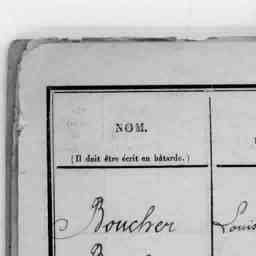 NOM.
(Il doit être écrit en bâtarde.)
Boucher Louis